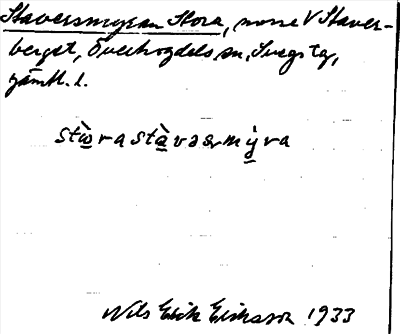 Staversmyran Stora, mosse V Staver-
berget, Överhogdals sn, Svegs tg,
Jämtl. l.
stὼ̲ra stà̲vərmỳ̲ra
Nils Erik Eriksson 1933